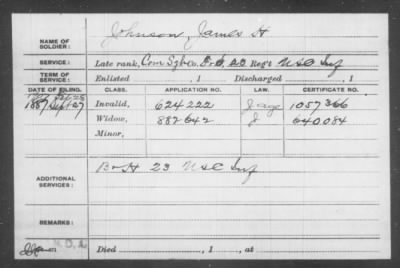 NAME OF SOLDIER: Johnson, James H
SERVICE: Late rank, Com Sgt Co. 22 Reg't U S C Inf
TERM OF SERVICE: Enlisted , 1 Discharged , 1
DATE OF FILING. CLASS. APPLICATION NO. LAW. CERTIFICATE NO.
Invalid, 624222 1057366
1887 Sept 27 Widow, 882642 640084
Minor,
ADDITIONAL SERVICES: B & H 23 U S C Inf
REMARKS:
Died , 1 , at